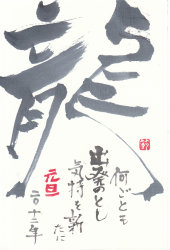 龍
何ごとも
出発のとし
気持を新たに
元旦
二〇十二年